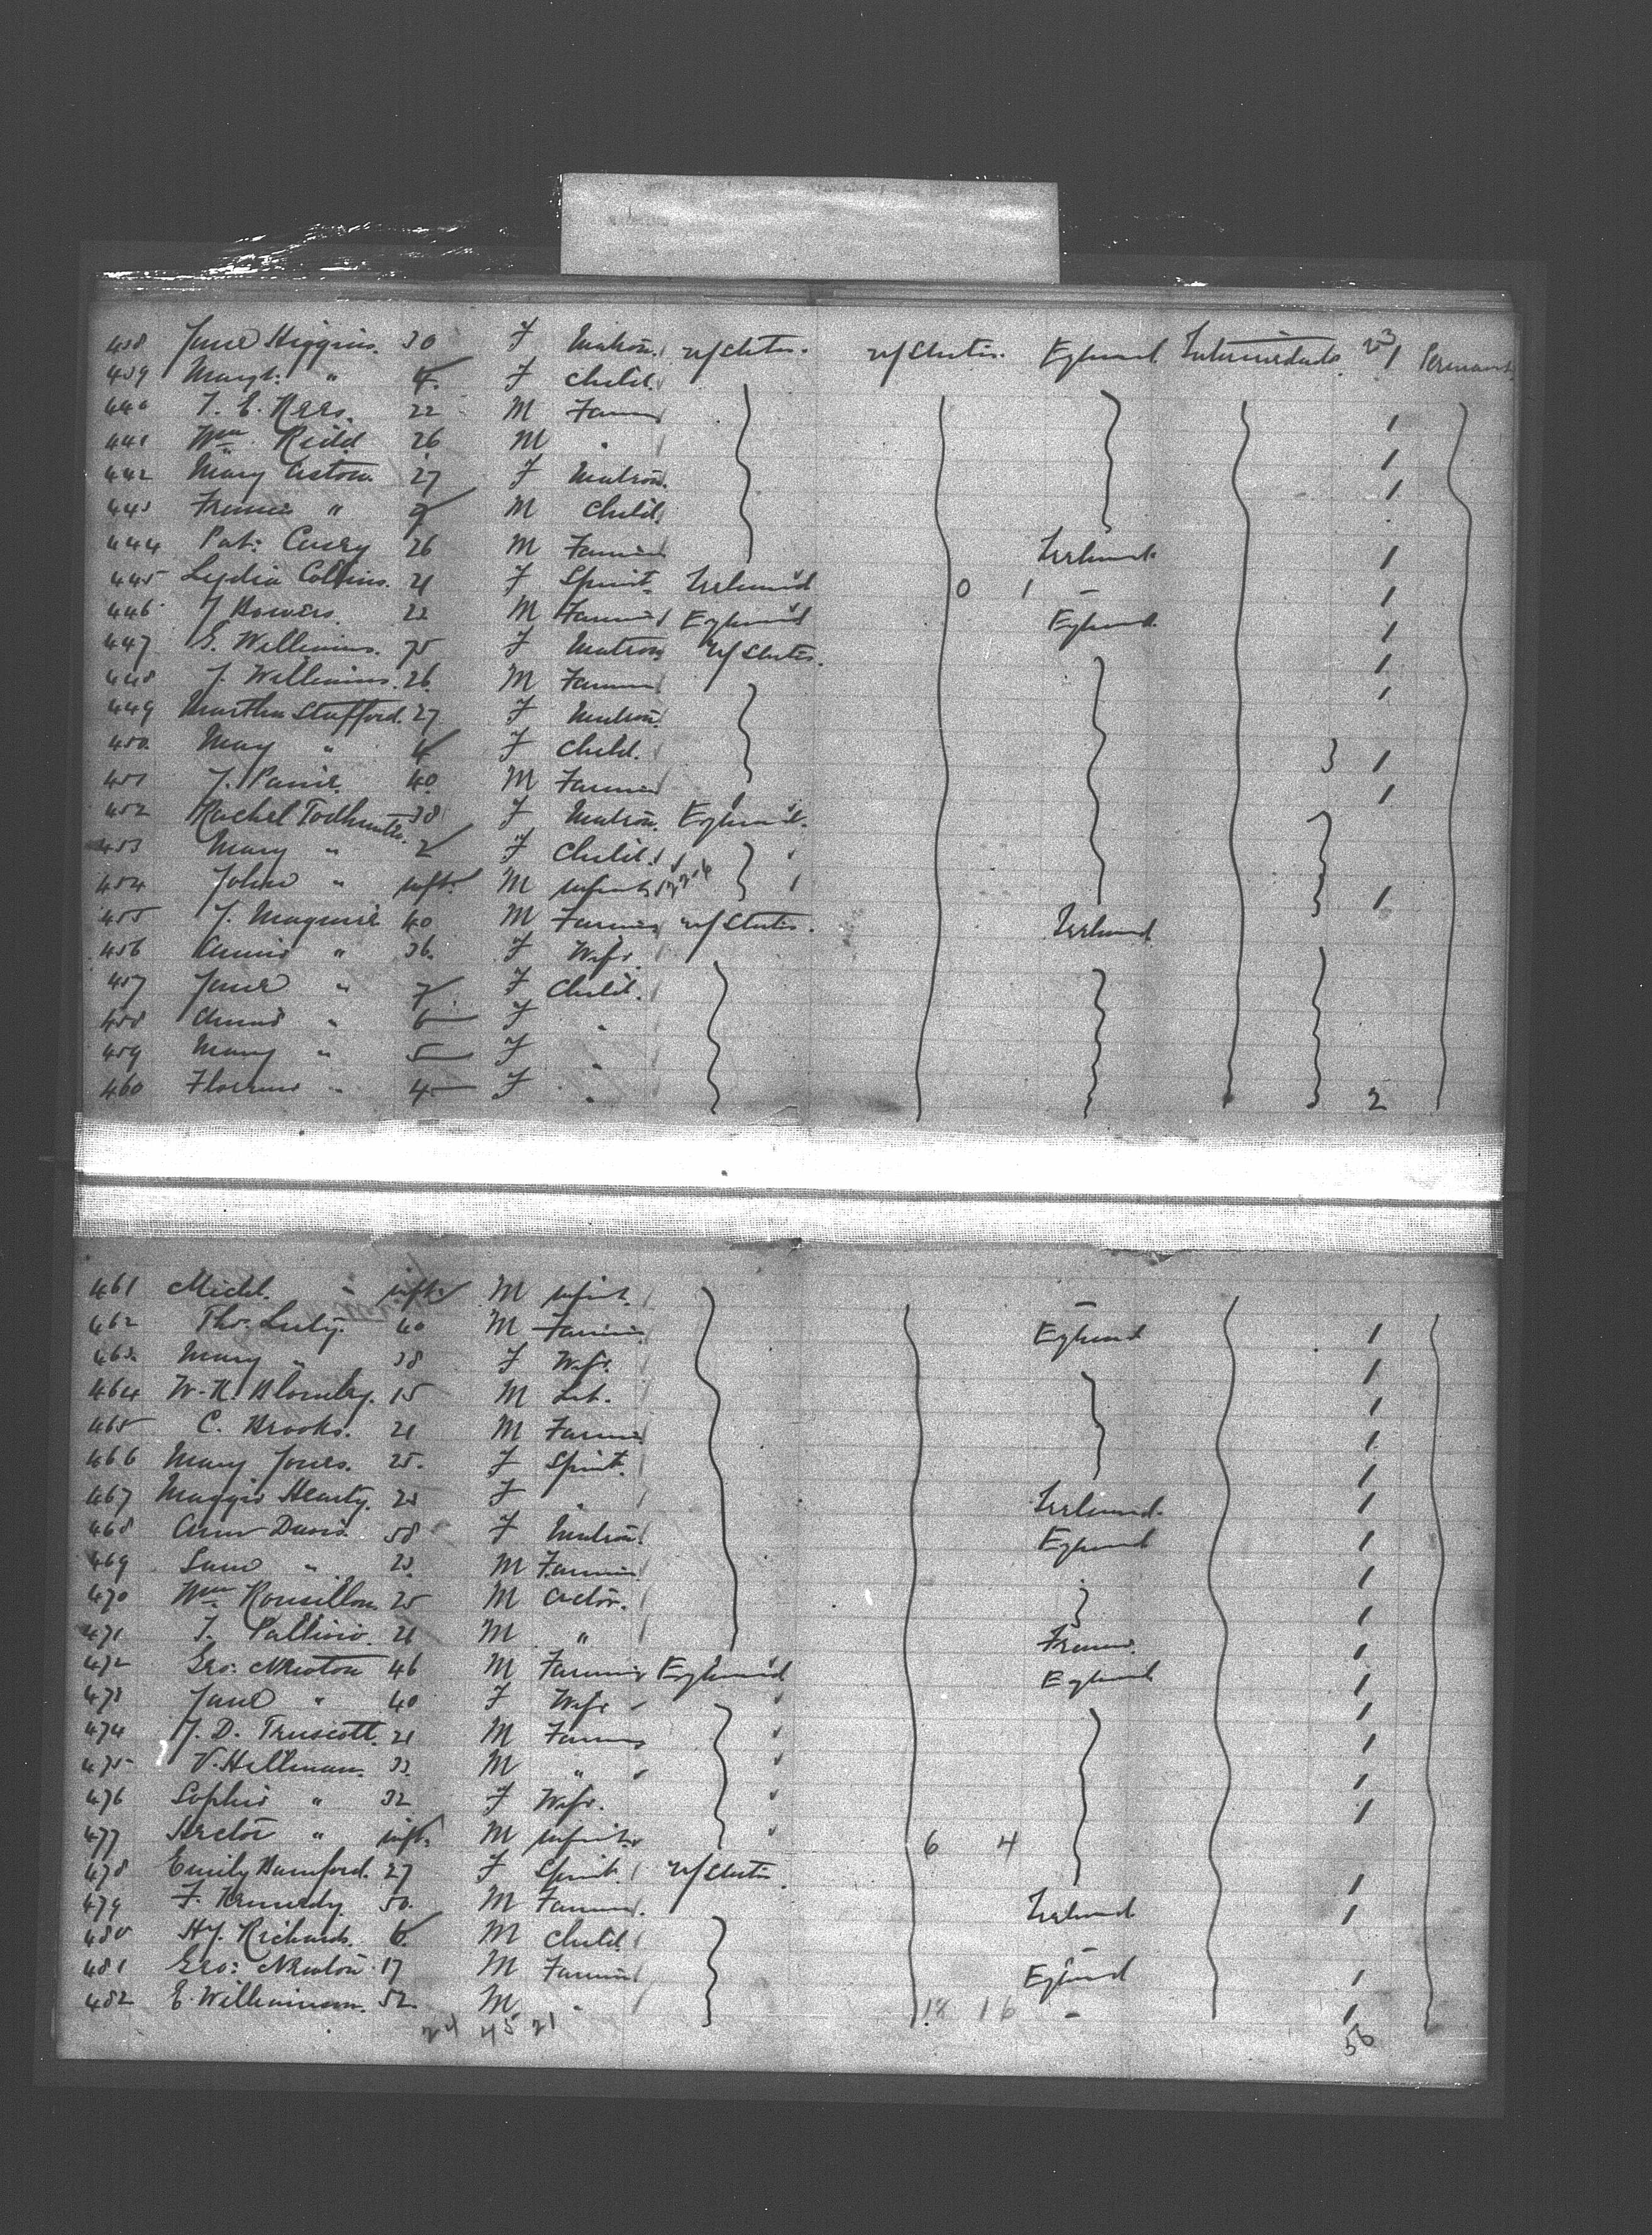 438 Jane Higgins. 30 F Matron. U/States. U/States. England Intermediate 1 Permanent
439 Mary E. " 4 F Child.
440 T. E. Rees. 22 M Farmer 1
441 Wm Reild 26 M " 1
442 Mary Astom 27 F Matron. 1
443 Francis " M Child.
444 Pat: Casey 26 M Farmer Ireland 1
445 Lydia Collins. 21 F Spinst. Ireland 0 1 – 1
446 J Bowers. 22 M Farmer England England 1
447 S. Williams. 75 F Matron U/States. 1
448 J. Williams. 26 M Farmer 1
449 Martha Stafford. 27 F Matron.
450 May " 4 F Child. 1
451 J. 40 M Farmer 1
452 Rachel Todhunter. 38 F Matron. England.
453 Mary " 2 F Child.
454 John " inft. M infant 1
455 J. Maguire 40 M Farmer U/States. Ireland
456 Annie " 36. F Wife
457 Jane " 7 F Child.
458 " 6 F "
459 Mary " 5 F
460 Florence " 4 F " 2
461 Michl. " inft. M infnt. –
462 Tho. Luty. 40 M Farmer England 1
463 Mary " 38 F Wife. 1
464 W. H. 15 M Lab. 1
465 C. Brooks. 21 M Farmer 1
466 Mary Jones. 25. F Spinst. 1
467 Maggie Hearty. 23 F " Ireland. 1
468 Ann Davis. 58 F Matron. England 1
469 Sam " 23. M Farmer 1
470 Wm Rousillon. 25 M Actor. 1
471 J. 21 M " France. 1
472 Geo: Newton 46 M Farmer England England 1
473 Jane " 40 F Wife 1
474 J. D. Truscott. 21 M Farmer 1
475 V. Hellman. 33. M " 1
476 Sophie " 32 F Wife. 1
477 Hector " inft. M infnt. 6 4
478 Emily Bamford. 27 F Spinst. U/States. 1
479 F. Kennedy. 50. M Farmer. Ireland 1
480 Hy. Richards. 6. M Child. –
481 Geo: Newton 17 M Farmer England 1
482 E. Williamson. 52. M " 18 16 – 1
24 45 21 56